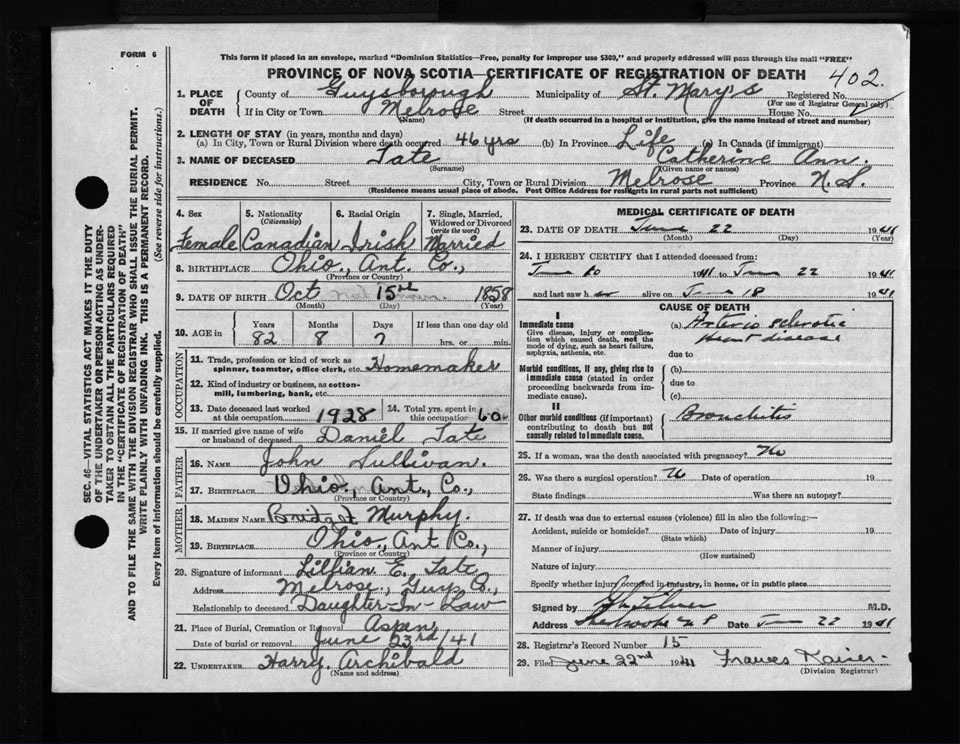 FORM 6
This form if placed in an envelope, marked "Dominion Statistics—Free, penalty for improper use $300," and properly addressed will pass through the mail "FREE"
PROVINCE OF NOVA SCOTIA—CERTIFICATE OF REGISTRATION OF DEATH 402
1. PLACE OF DEATH County of Guysborough Municipality of St. Mary's Registered No.
(For use of Registrar General only)
If in City or Town Melrose Street House No.
(Name) (If death occurred in a hospital or institution, give the name instead of street and number)
2. LENGTH OF STAY (in years, months and days)
(a) In City, Town or Rural Division where death occurred 46 yrs (b) In Province Life (c) In Canada (if immigrant)
3. NAME OF DECEASED Tate Catherine Ann.
(Surname) (Given name or names)
RESIDENCE No. Street City, Town or Rural Division Melrose Province N. S.
(Residence means usual place of abode. Post Office Address for residents in rural parts not sufficient)
4. Sex 5. Nationality (Citizenship) 6. Racial Origin 7. Single, Married, Widowed or Divorced (write the word)
Female Canadian Irish Married
8. BIRTHPLACE Ohio., Ant. Co.,
(Province or Country)
9. DATE OF BIRTH Oct 15th 1858
(Month) (Day) (Year)
10. AGE in Years Months Days If less than one day old
82 8 7 hrs. or min.
OCCUPATION
11. Trade, profession or kind of work as spinner, teamster, office clerk, etc. Homemaker
12. Kind of industry or business, as cotton-mill, lumbering, bank, etc.
13. Date deceased last worked at this occupation 1928 14. Total yrs. spent in this occupation 60
15. If married give name of wife or husband of deceased Daniel Tate
FATHER
16. NAME John Sullivan.
17. BIRTHPLACE Ohio., Ant., Co.,
(Province or Country)
MOTHER
18. MAIDEN NAME Bridget Murphy.
19. BIRTHPLACE Ohio., Ant Co.,
(Province or Country)
20. Signature of informant Lillian E. Tate
Address Melrose., Guys Co.,
Relationship to deceased Daughter-In-Law
21. Place of Burial, Cremation or Removal Aspen
Date of burial or removal June 23rd/41
22. UNDERTAKER Harry. Archibald
(Name and address)
MEDICAL CERTIFICATE OF DEATH
23. DATE OF DEATH June 22 1941
(Month) (Day) (Year)
24. I HEREBY CERTIFY that I attended deceased from:
June 1941 to June 22 1941
and last saw h er alive on June 18 1941
CAUSE OF DEATH
I
Immediate cause (a) Arterio sclerotic
Give disease, injury or complication which caused death, not the mode of dying, such as heart failure, asphyxia, asthenia, etc. heart disease
due to
Morbid conditions, if any, giving rise to immediate cause (stated in order proceeding backwards from immediate cause). (b)
due to
(c)
II
Other morbid conditions (if important) contributing to death but not causally related to immediate cause. Bronchitis
25. If a woman, was the death associated with pregnancy? No
26. Was there a surgical operation? No Date of operation 19
State findings Was there an autopsy?
27. If death was due to external causes (violence) fill in also the following:—
Accident, suicide or homicide? Date of injury 19
(State which)
Manner of injury
(How sustained)
Nature of injury
Specify whether injury occurred in industry, in home, or in public place
Signed by M.D.
Address Sherbrooke N S Date June 22 1941
28. Registrar's Record Number 15
29. Filed June 22nd 1941 Frances
(Division Registrar)
SEC. 46—VITAL STATISTICS ACT MAKES IT THE DUTY
OF THE UNDERTAKER OR PERSON ACTING AS UNDER-
TAKER TO OBTAIN ALL THE PARTICULARS REQUIRED
IN THE "CERTIFICATE OF REGISTRATION OF DEATH"
AND TO FILE THE SAME WITH THE DIVISION REGISTRAR WHO SHALL ISSUE THE BURIAL PERMIT.
WRITE PLAINLY WITH UNFADING INK. THIS IS A PERMANENT RECORD.
Every item of information should be carefully supplied. (See reverse side for instructions.)